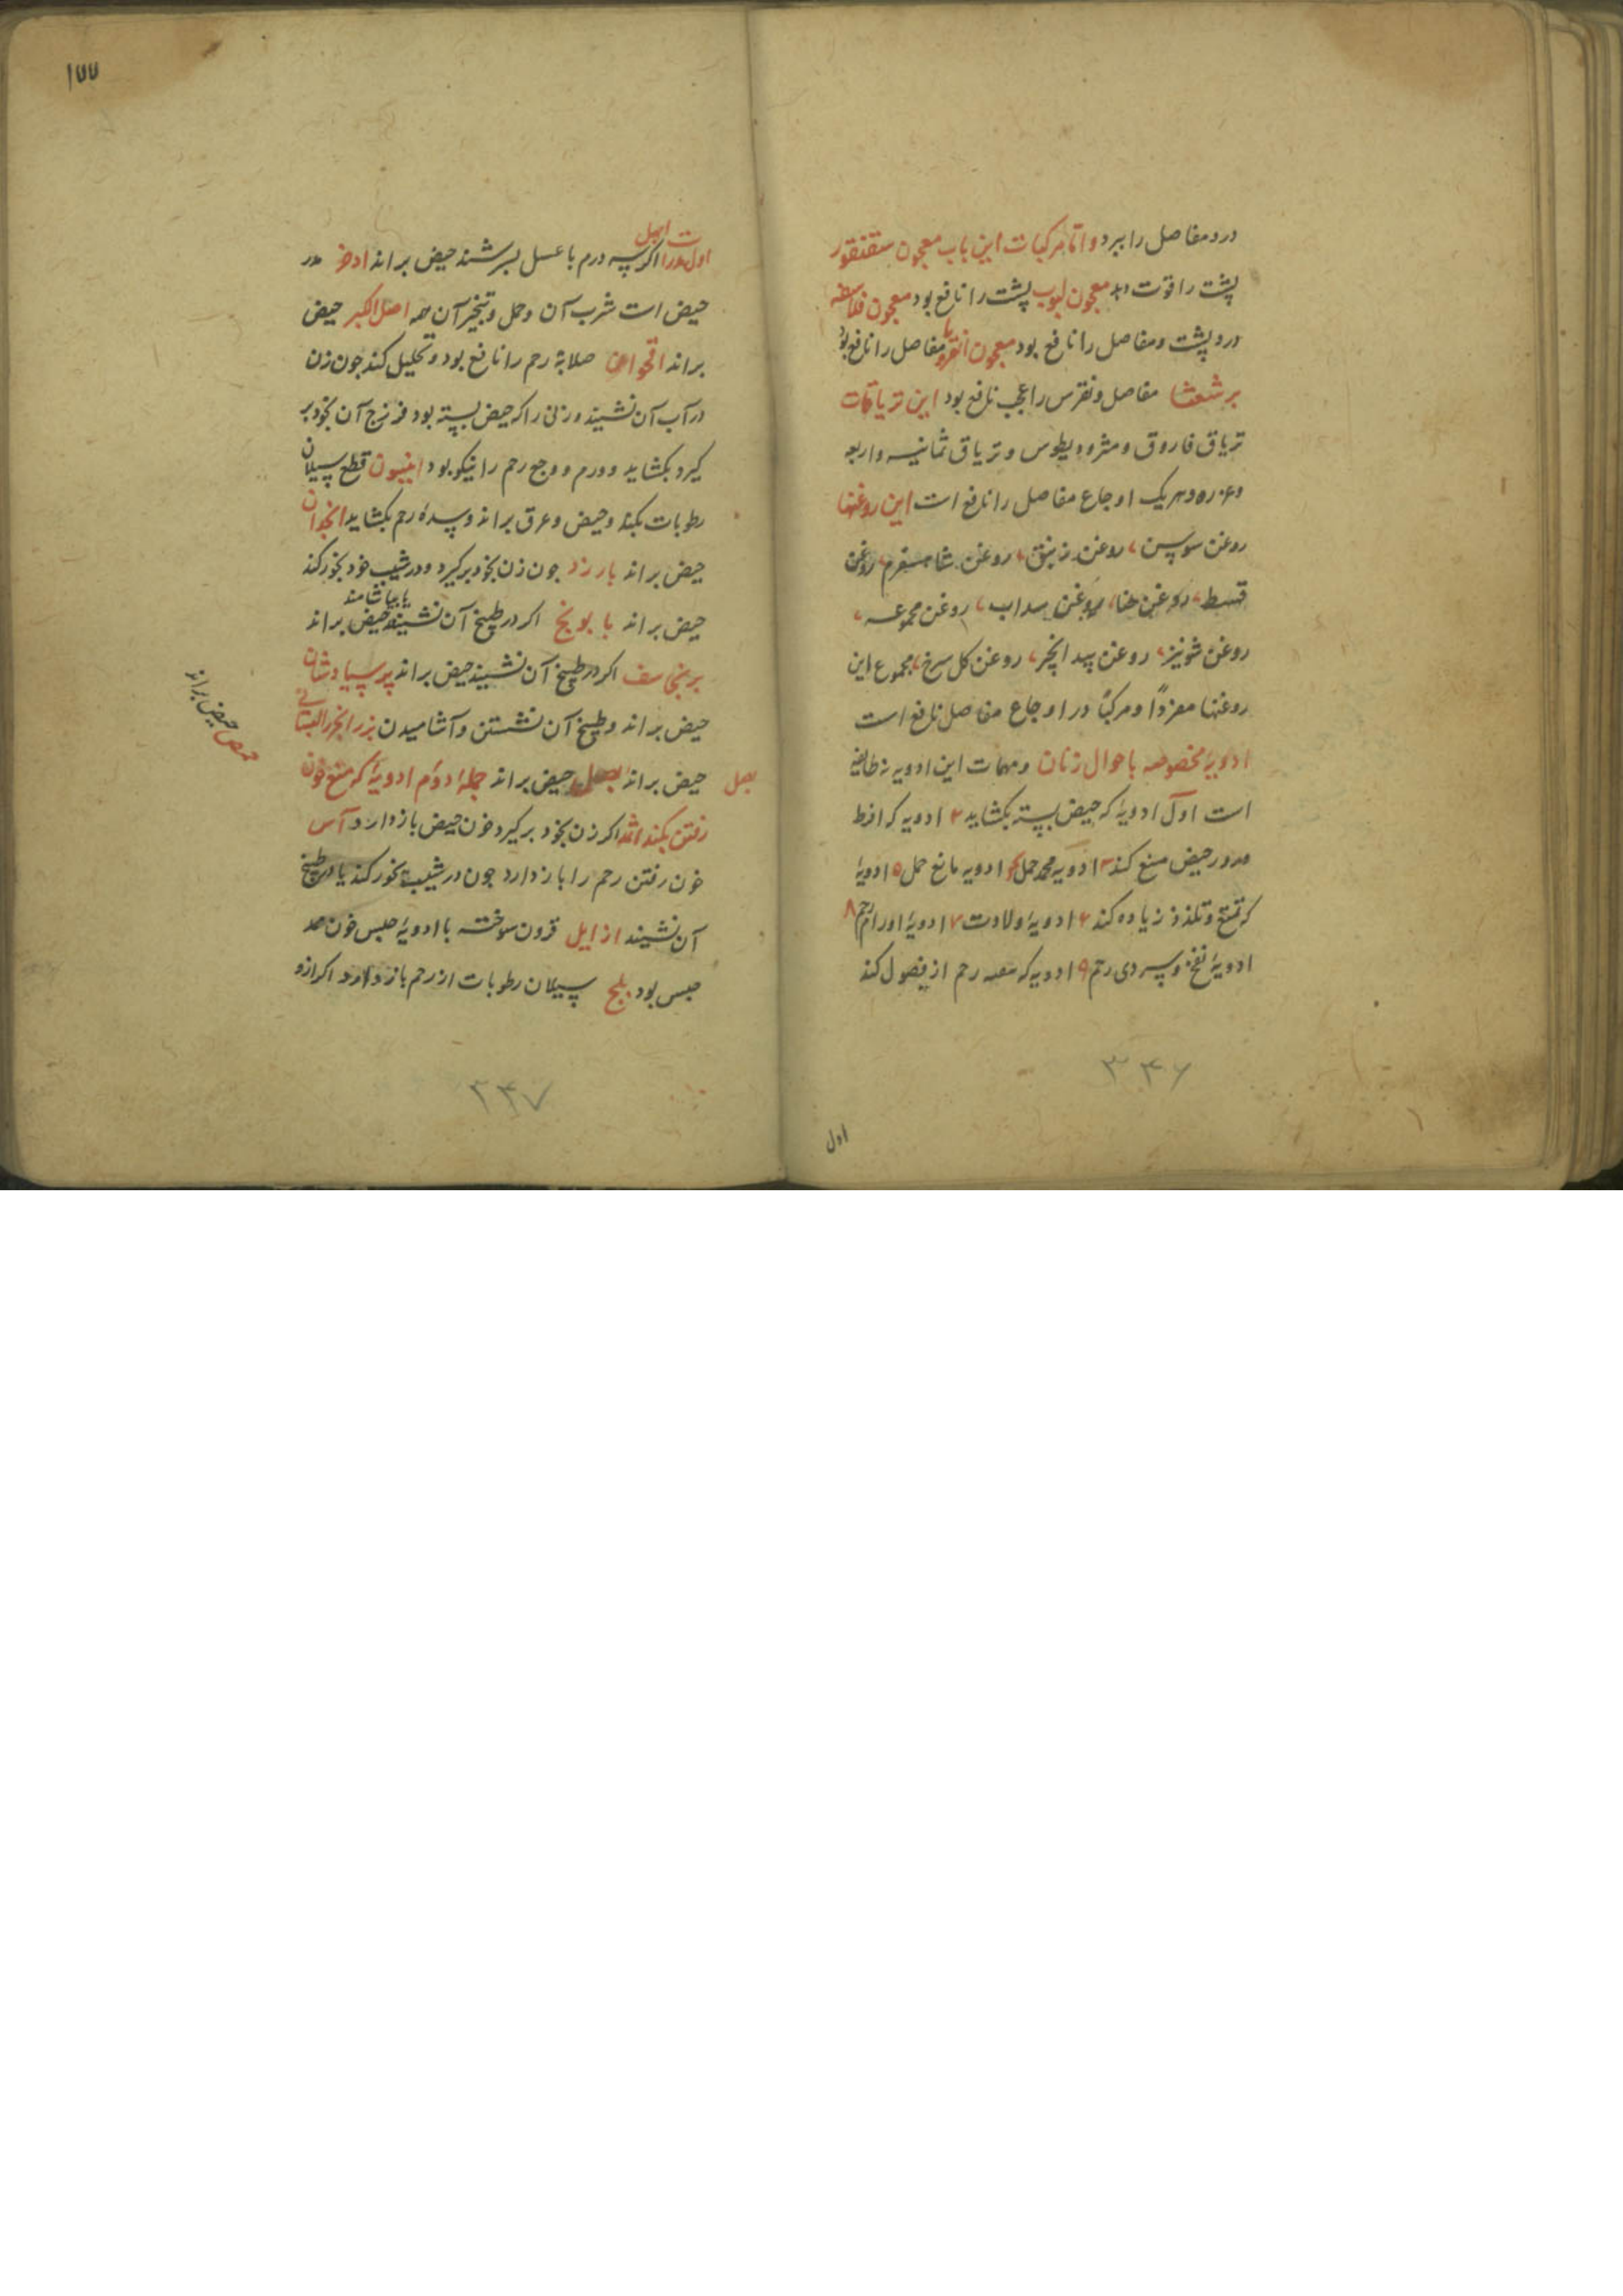 درد مفاصل را ببرد و اما مرکبات این باب معجون سقنقور
پشت را قوت دهد معجون لبوب پشت را نافع بود معجون فلاسفه
درد پشت و مفاصل را نافع بود معجون انقرویا مفاصل را نافع بود
برشعثا مفاصل و نقرس را عجب نافع بود این تریاقات
تریاق فاروق و مثرودیطوس و تریاق ثمانیه و اربعه
و عزره و هریک اوجاع مفاصل را نافع است این روغنها
روغن سوسن، روغن زنبق، روغن شاهسفرم، روغن
قسط، روغن حنا، روغن سداب، روغن مجموعه،
روغن شونیز، روغن بیدانجیر، روغن کل سرخ، مجموع این
روغنها مفردًا و مرکبًا در اوجاع مفاصل نافع است
ادویهٔ مخصوصه باحوال زنان ومهمات این ادویه نه طایفه
است اول ادویهٔ که حیض بسته بکشاید ۲ ادویه که افراط
درور حیض منع کند ۳ ادویه حمل ۴ ادویه مانع حمل ۵ ادویهٔ
که تمتع و تلذذ زیاده کند ۶ ادویهٔ ولادت ۷ ادویهٔ اورام رحم ۸
ادویهٔ نفخ و سردی رحم ۹ ادویه که رحم از فضول کند
۳۳۶
اول
۱۷۷
ابهل
اول اکر سه درم با عسل بسرشند حیض براند اذخر مدر
حیض است شرب آن و حمل و تبخیر آن همه اصل الکبر حیض
براند اقحوان صلابة رحم را نافع بود و تحلیل کند جون زن
در آب آن نشیند و زنی را که حیض بسته بود فرزج آن بخود بر
کیرد بکشاید و ورم و وجع رحم را نیکو بود انیسون قطع سیلان
رطوبات بکند و حیض و عرق براند و سدهٔ رحم بکشاید انجدان
حیض براند بارزد جون زن بخود برکیرد و در شیب خود بخور کند
حیض براند بابونج اکر در طبیخ آن نشیند یا بیاشامند حیض براند
برنجاسف اکر در طبیخ آن نشیند حیض براند پرسیاوشان
حیض براند و طبیخ آن نشستن و آشامیدن بزر الجزر البستانی
حیض براند بصل حیض براند جملهٔ دوم ادویهٔ که منع خون
بصل
رفتن بکند اثمد اکر زن بخود برکیرد خون حیض باز دارد آس
خون رفتن رحم را باز دارد جون در شیب بخور کند یا در طبیخ
آن نشیند از ایل قرون سوخته با ادویهٔ حبس خون مد
حبس بود بلح سیلان رطوبات از رحم باز دارد اکر ازو
حمص حیض براند
۳۳۷